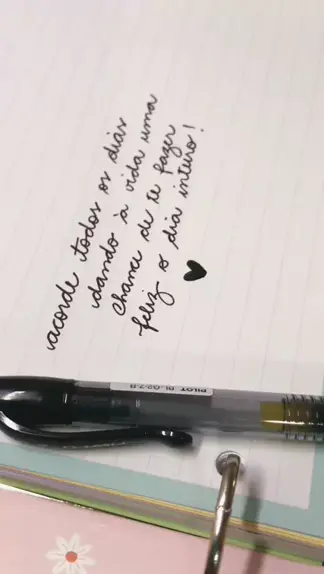 acorde todos os dias
dando à vida uma
chance de te fazer
feliz o dia inteiro!
PILOT BL-G2-7-B